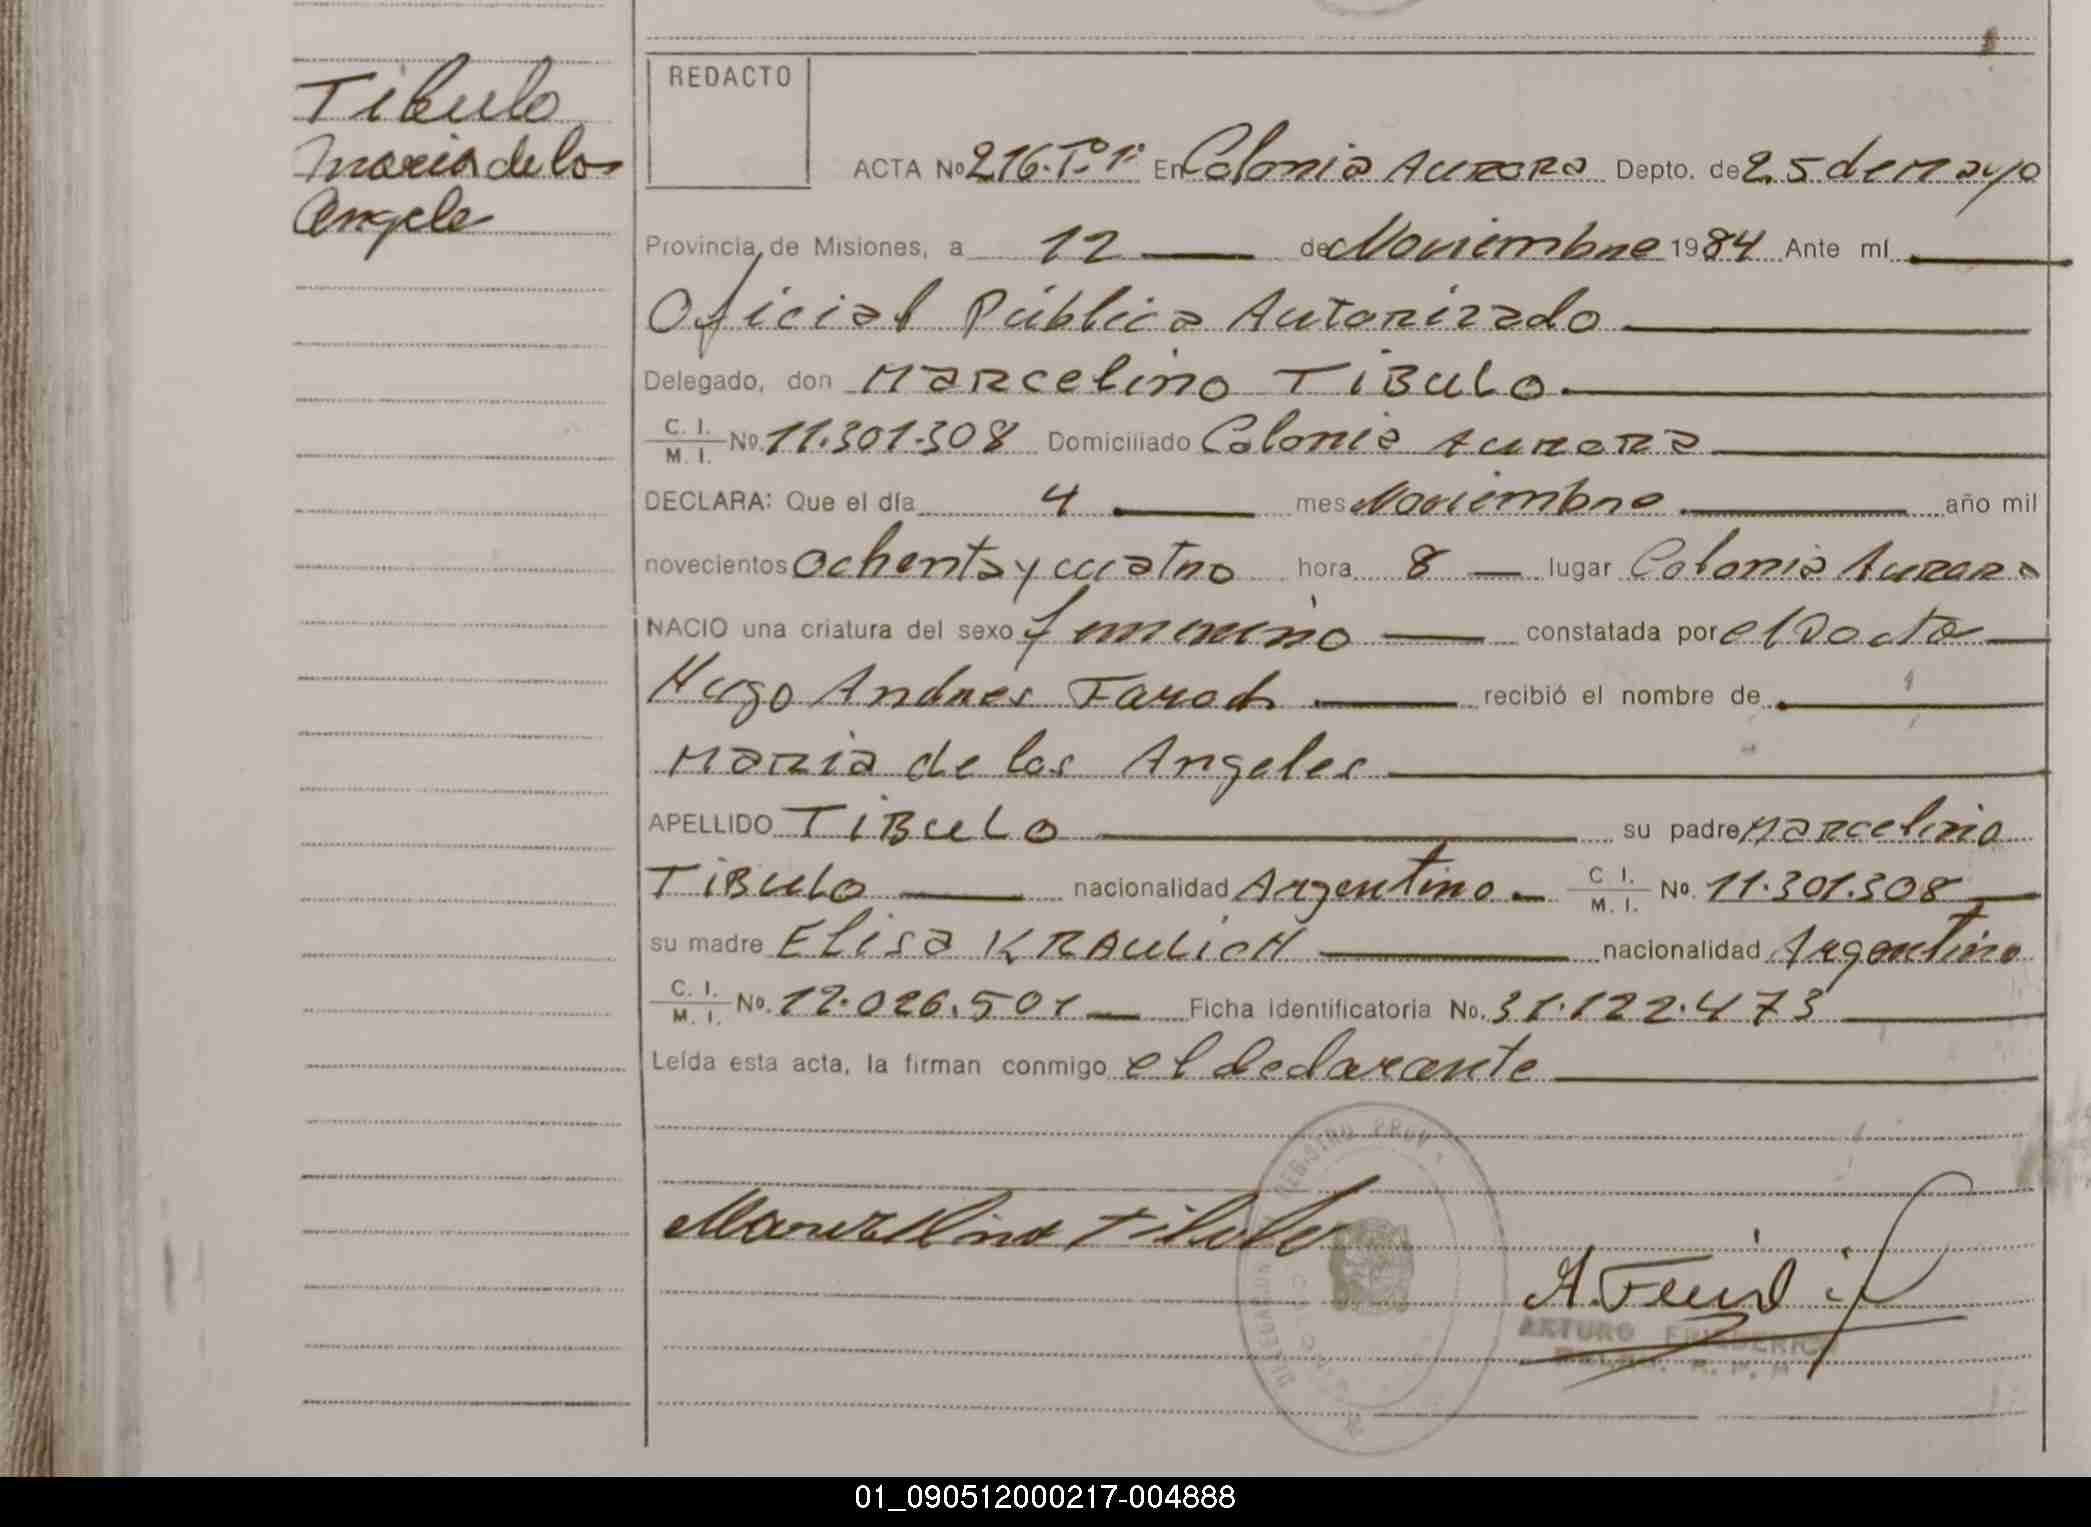 Tibulo
Maria de los
Angele
REDACTO
ACTA Nº 216. Tº 1º En Colonia Aurora Depto. de 25 de Mayo
Provincia de Misiones, a 12 de Noviembre 1984 Ante mí
Oficial Público Autorizado
Delegado, don Marcelino TiBulo
C. I.
M. I. Nº. 11.301.308 Domiciliado Colonia Aurora
DECLARA: Que el día 4 mes Noviembre año mil
novecientos Ochenta y cuatro hora 8 lugar Colonia Aurora
NACIO una criatura del sexo femenino constatada por el Docto
Hugo Andres recibió el nombre de
Maria de los Angeles
APELLIDO TiBulo su padre Marcelino
TiBulo nacionalidad Argentino C I. M. I. No. 11.301.308
su madre Elisa KRAULICH nacionalidad Argentino
C. I.
M. I. Nº. 12.026.501 Ficha identificatoria No. 31.122.473
Leída esta acta, la firman conmigo el declarante
Marcelino Tibulo
REGISTRO PROV
DELEGACION
ARTURO FRIDERICH
01_090512000217-004888